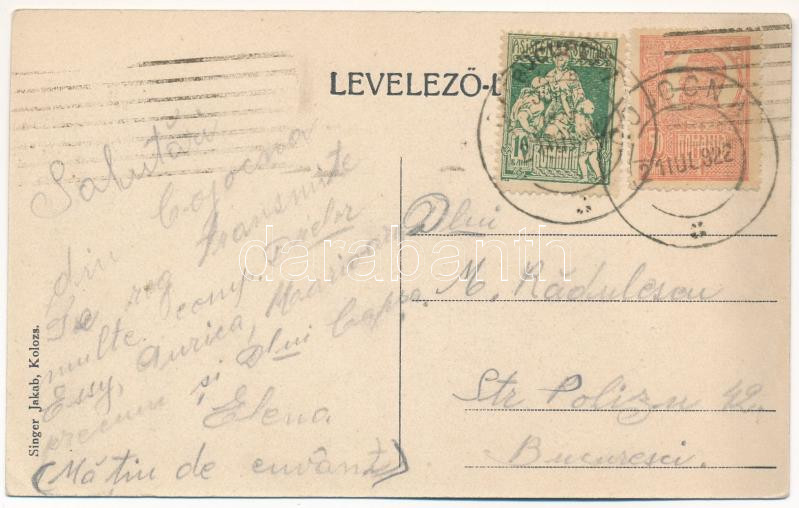 LEVELEZŐ-L
ASISTENTA SOCIALA
10
COJOCNA
21 IUL 922
Salutări
din Cojocna
Te rog transmite
multe comp. Dorelor
Essy, Aurica, Madrigan
precum și Dlui Capșa.
Elena
(Mă tin de cuvânt)
Dlui
M. Rădulescu
Str Polizu 42.
Bucuresci.
Singer Jakab, Kolozs.
darabanth